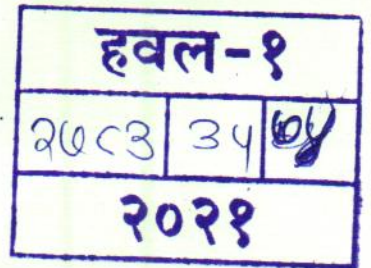 हवल-१
२७८३ ३५
२०२१